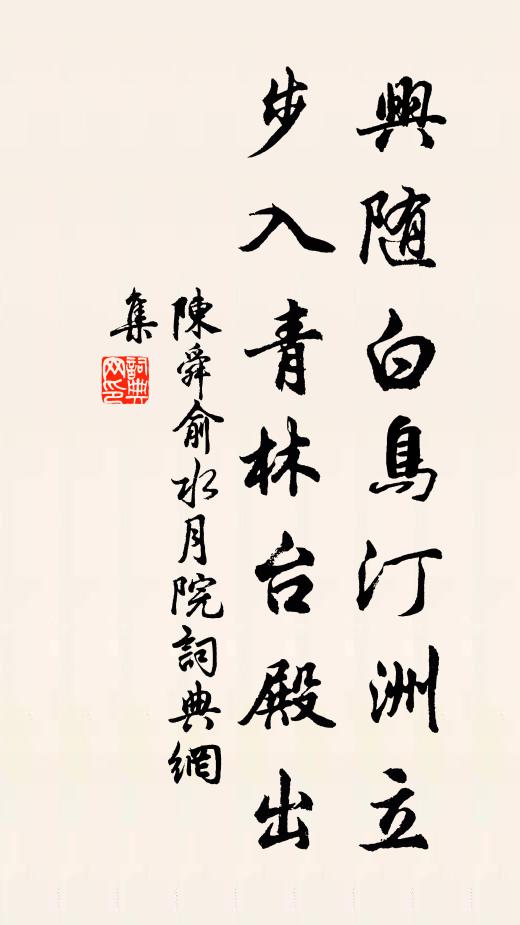 興随白鳥汀洲立
步入青林台殿出
陳舜俞水月院詞典網
集
詞典
网印